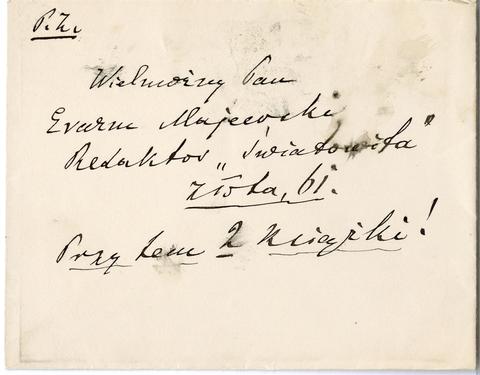 P.Z.
Wielmożny Pan
Erazm Majewski
Redaktor „Światowita”
Złota, 61.
Przy tem 2 książki!